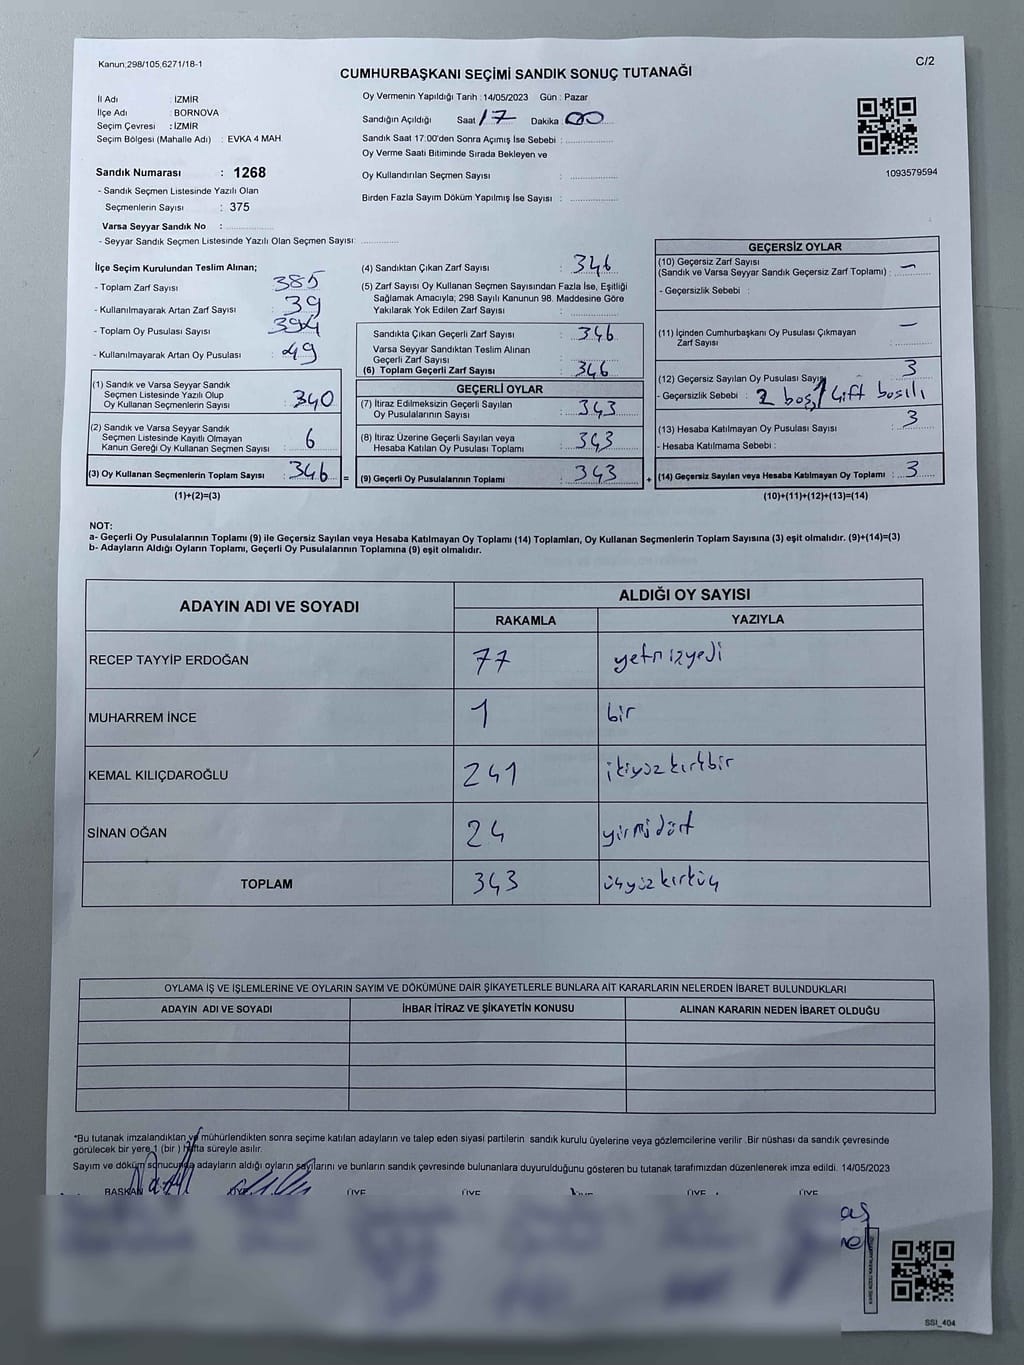 Kanun;298/105,6271/18-1
C/2
CUMHURBAŞKANI SEÇİMİ SANDIK SONUÇ TUTANAĞI
İl Adı : İZMİR
İlçe Adı : BORNOVA
Seçim Çevresi : İZMİR
Seçim Bölgesi (Mahalle Adı) : EVKA 4 MAH.
Oy Vermenin Yapıldığı Tarih :14/05/2023 Gün : Pazar
Sandığın Açıldığı Saat 17 Dakika 00
Sandık Saat 17.00'den Sonra Açımış İse Sebebi :
Oy Verme Saati Bitiminde Sırada Bekleyen ve
Oy Kullandırılan Seçmen Sayısı :
Birden Fazla Sayım Döküm Yapılmış İse Sayısı :
1093579594
Sandık Numarası : 1268
- Sandık Seçmen Listesinde Yazılı Olan
Seçmenlerin Sayısı : 375
Varsa Seyyar Sandık No :
- Seyyar Sandık Seçmen Listesinde Yazılı Olan Seçmen Sayısı:
İlçe Seçim Kurulundan Teslim Alınan;
- Toplam Zarf Sayısı : 385
- Kullanılmayarak Artan Zarf Sayısı : 39
- Toplam Oy Pusulası Sayısı : 394
- Kullanılmayarak Artan Oy Pusulası : 49
(1) Sandık ve Varsa Seyyar Sandık
Seçmen Listesinde Yazılı Olup
Oy Kullanan Seçmenlerin Sayısı : 340
(2) Sandık ve Varsa Seyyar Sandık
Seçmen Listesinde Kayıtlı Olmayan
Kanun Gereği Oy Kullanan Seçmen Sayısı : 6
(3) Oy Kullanan Seçmenlerin Toplam Sayısı : 346 =
(1)+(2)=(3)
(4) Sandıktan Çıkan Zarf Sayısı : 346
(5) Zarf Sayısı Oy Kullanan Seçmen Sayısından Fazla İse, Eşitliği
Sağlamak Amacıyla; 298 Sayılı Kanunun 98. Maddesine Göre
Yakılarak Yok Edilen Zarf Sayısı :
Sandıkta Çıkan Geçerli Zarf Sayısı : 346
Varsa Seyyar Sandıktan Teslim Alınan
Geçerli Zarf Sayısı :
(6) Toplam Geçerli Zarf Sayısı : 346
GEÇERLİ OYLAR
(7) İtiraz Edilmeksizin Geçerli Sayılan
Oy Pusulalarının Sayısı : 343
(8) İtiraz Üzerine Geçerli Sayılan veya
Hesaba Katılan Oy Pusulası Toplamı : 343
(9) Geçerli Oy Pusulalarının Toplamı : 343 +
GEÇERSİZ OYLAR
(10) Geçersiz Zarf Sayısı
(Sandık ve Varsa Seyyar Sandık Geçersiz Zarf Toplamı) : –
- Geçersizlik Sebebi :
(11) İçinden Cumhurbaşkanı Oy Pusulası Çıkmayan
Zarf Sayısı : –
(12) Geçersiz Sayılan Oy Pusulası Sayısı 3
- Geçersizlik Sebebi : 2 boş, 1 çift basılı
(13) Hesaba Katılmayan Oy Pusulası Sayısı : 3
- Hesaba Katılmama Sebebi :
(14) Geçersiz Sayılan veya Hesaba Katılmayan Oy Toplamı : 3
(10)+(11)+(12)+(13)=(14)
NOT:
a- Geçerli Oy Pusulalarının Toplamı (9) ile Geçersiz Sayılan veya Hesaba Katılmayan Oy Toplamı (14) Toplamları, Oy Kullanan Seçmenlerin Toplam Sayısına (3) eşit olmalıdır. (9)+(14)=(3)
b- Adayların Aldığı Oyların Toplamı, Geçerli Oy Pusulalarının Toplamına (9) eşit olmalıdır.
ADAYIN ADI VE SOYADI ALDIĞI OY SAYISI
RAKAMLA YAZIYLA
RECEP TAYYİP ERDOĞAN 77 yetmişyedi
MUHARREM İNCE 1 bir
KEMAL KILIÇDAROĞLU 241 ikiyüzkırkbir
SİNAN OĞAN 24 yirmidört
TOPLAM 343 üçyüzkırküç
OYLAMA İŞ VE İŞLEMLERİNE VE OYLARIN SAYIM VE DÖKÜMÜNE DAİR ŞİKAYETLERLE BUNLARA AİT KARARLARIN NELERDEN İBARET BULUNDUKLARI
ADAYIN ADI VE SOYADI İHBAR İTİRAZ VE ŞİKAYETİN KONUSU ALINAN KARARIN NEDEN İBARET OLDUĞU
*Bu tutanak imzalandıktan ve mühürlendikten sonra seçime katılan adayların ve talep eden siyasi partilerin sandık kurulu üyelerine veya gözlemcilerine verilir .Bir nüshası da sandık çevresinde
görülecek bir yere 1 (bir ) hafta süreyle asılır.
Sayım ve döküm sonucunda adayların aldığı oyların sayılarını ve bunların sandık çevresinde bulunanlara duyurulduğunu gösteren bu tutanak tarafımızdan düzenlenerek imza edildi. 14/05/2023
BAŞKAN ÜYE ÜYE ÜYE ÜYE ÜYE
SSI_404